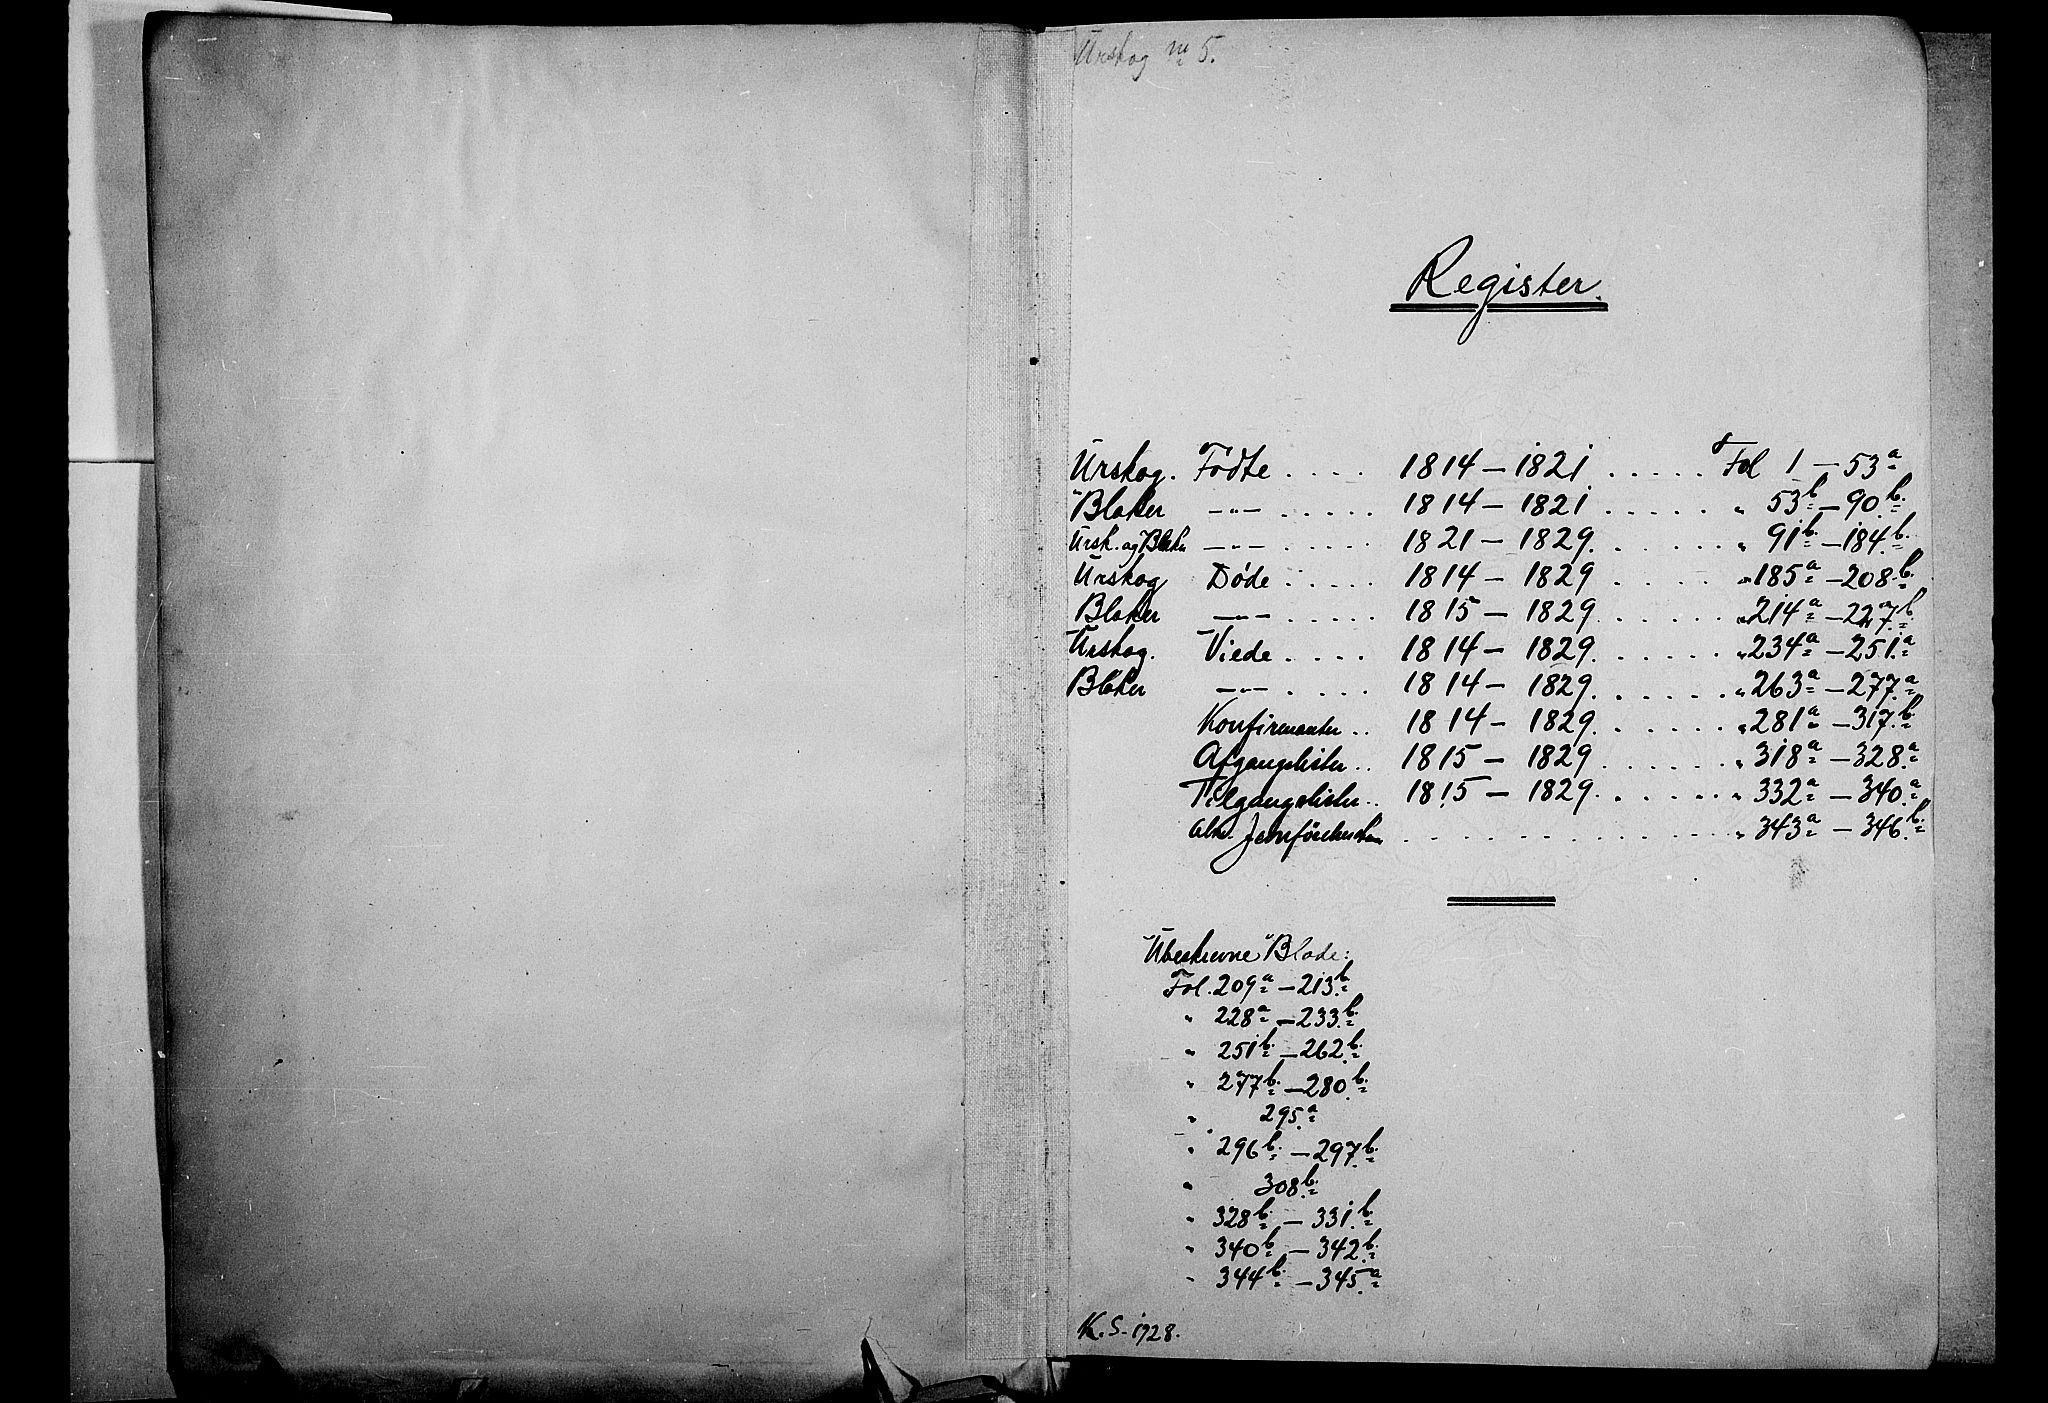 Urskog nr 5.
Register.
Urskog. Fødte . . . . 1814 – 1821 . . . . . Fol 1 – 53a
Blaker –"– . . . . . 1814 – 1821 . . . . . . " 53b – 90b.
Ursk. og Blaker –"– . . . . . 1821 – 1829. . . . . . " 91b. – 184b.
Urskog Døde . . . . . 1814 – 1829 . . . . . " 185a – 208b.
Blaker –"– . . . . . 1815 – 1829. . . . . . " 214a – 227b.
Urskog. Viede . . . . 1814 – 1829. . . . . . " 234a – 251a
Blaker –"– . . . . 1814 – 1829. . . . . . " 263a – 277a
Konfirmanter . . 1814 – 1829. . . . . . " 281a – 317b.
Afgangslister . . 1815 – 1829. . . . . . " 318a – 328a
Tilgangslister . . 1815 – 1829. . . . . . " 332a – 340a
Alm. Jevnförelser . . . . . . . . . . . . " 343a – 346b.
Ubeskrevne Blade:
Fol. 209a – 213b.
" 228a – 233b.
" 251b. – 262b.
" 277b. – 280b.
" 295a
" 296b. – 297b.
" 308b.
" 328b. – 331b.
" 340b – 342b.
" 344b. – 345a
K. S. 1928.